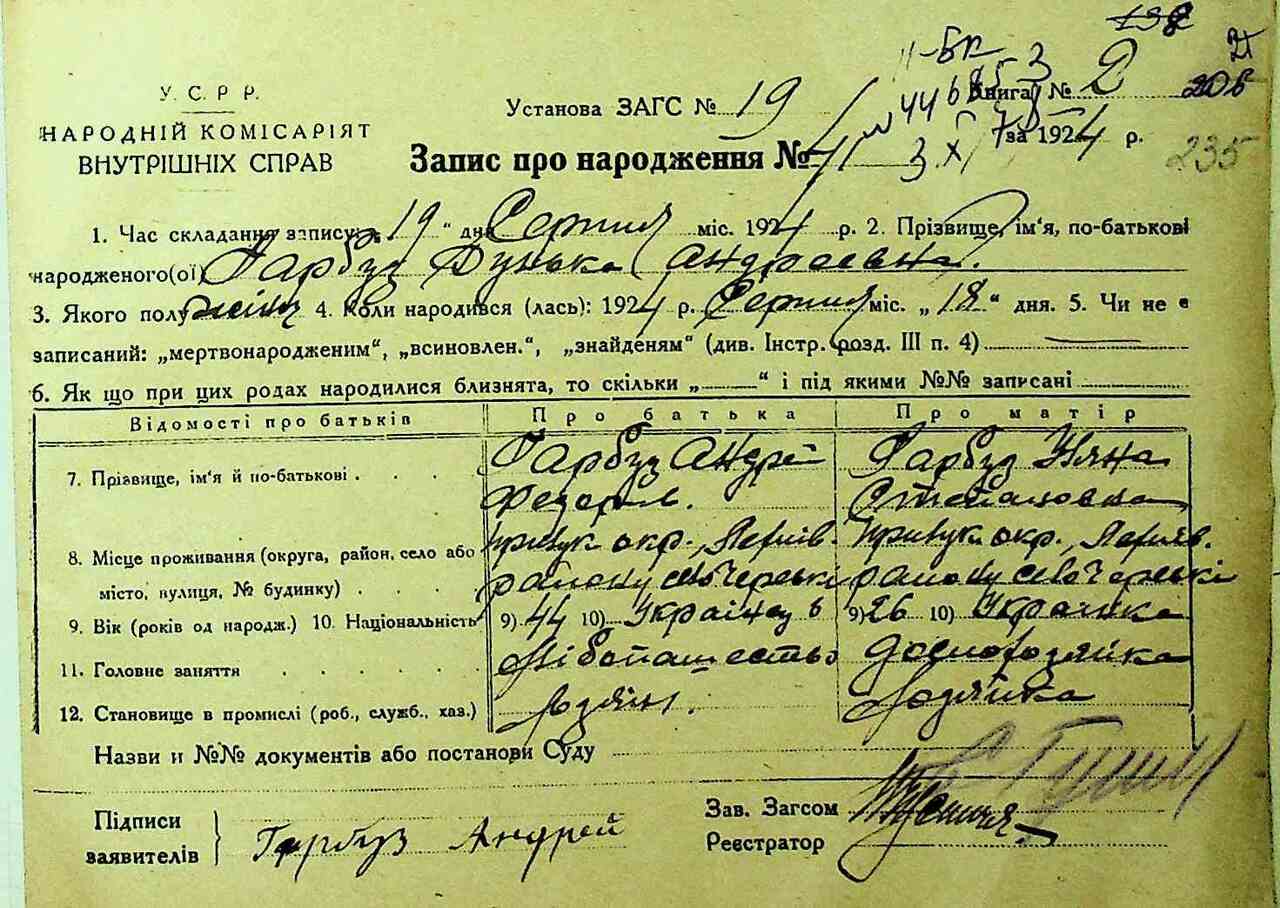 138
II-БК
У. С. Р. Р.
Установа ЗАГС № 19
Книга № 2
206
НАРОДНІЙ КОМІСАРІЯТ
ВНУТРІШНІХ СПРАВ
за 1924 р.
235
Запис про народження № 41
3.XI
1. Час складання запису: „19“ дня Серпня міс. 1924 р. 2. Прізвище, ім'я, по-батькові
народженого(ої) Гарбуз Дунька Андреевна.
3. Якого полу жін 4. Коли народився (лась): 1924 р. Серпня міс. „18“ дня. 5. Чи не є
записаний: „мертвонародженим“, „всиновлен.“, „знайденям“ (див. Інстр. розд. III п. 4)
6. Як що при цих родах народилися близнята, то скільки „ “ і під якими №№ записані
Відомості про батьків
Про батька
Про матір
7. Прізвище, ім'я й по-батькові
Гарбуз Андрей
Федоров.
Гарбуз Уляна
Степановна
8. Місце проживання (округа, район, село або
місто, вулиця, № будинку)
Прилук окр.,
району село
Прилук окр.,
району село
9. Вік (років од народж.) 10. Національність
9) 44 10) Українець
9) 26 10) Українка
11. Головне заняття
Хлібопашество
Домохозяйка
12. Становище в промислі (роб., служб., хаз.)
Хозяин.
Хозяйка
Назви и №№ документів або постанови Суду
Підписи
заявителів
Гарбуз Андрей
Зав. Загсом
Реєстратор